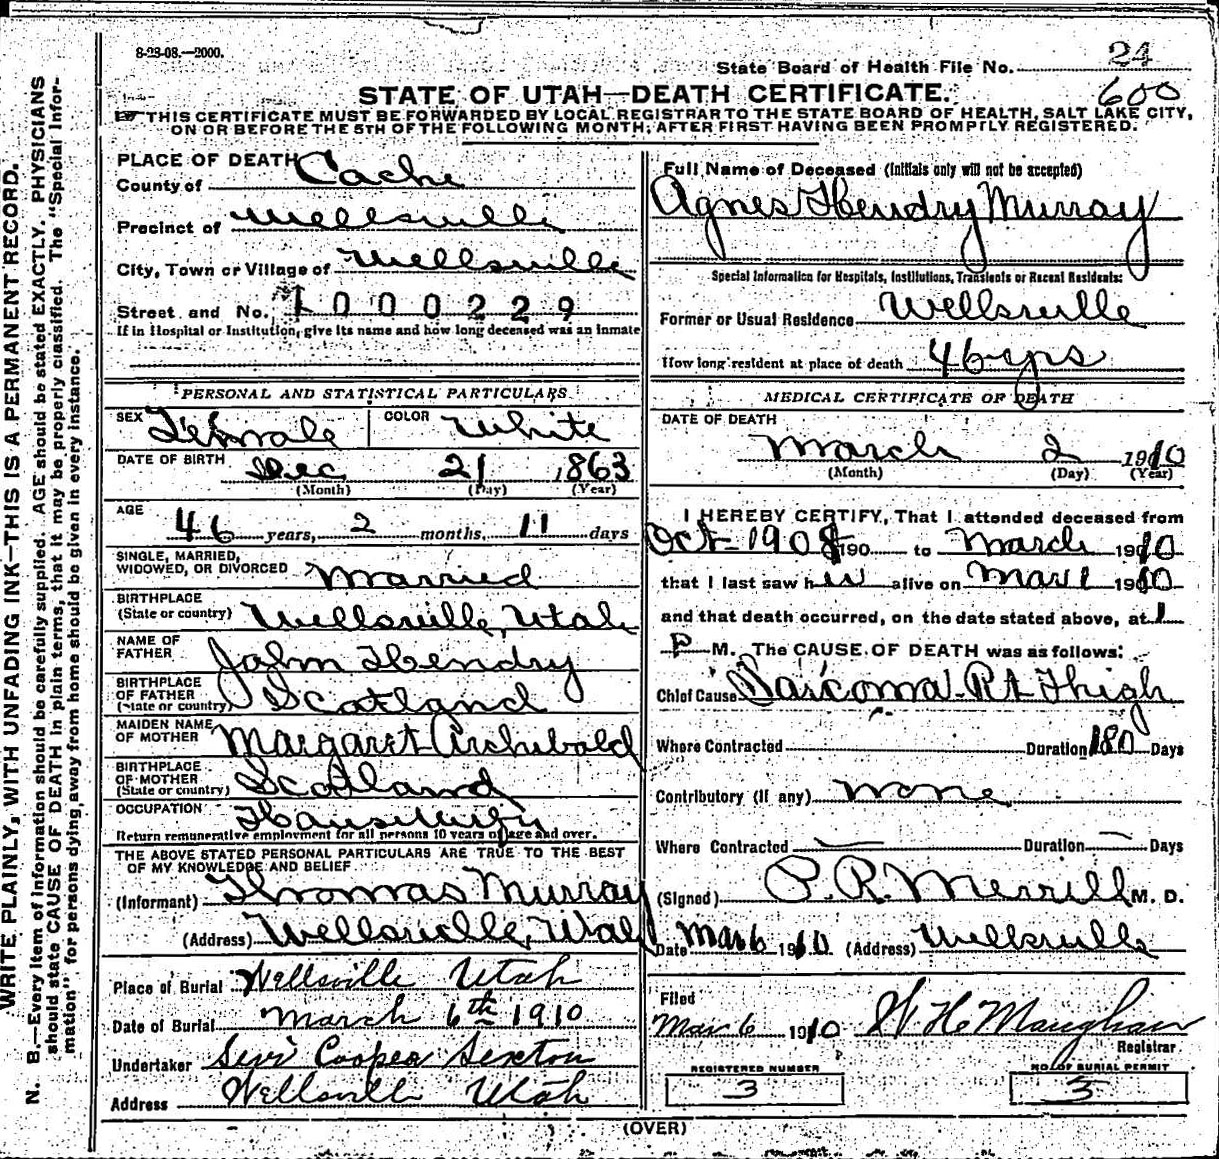 8-28-08.—2000.
State Board of Health File No. 24
600
STATE OF UTAH—DEATH CERTIFICATE.
THIS CERTIFICATE MUST BE FORWARDED BY LOCAL REGISTRAR TO THE STATE BOARD OF HEALTH, SALT LAKE CITY,
ON OR BEFORE THE 5TH OF THE FOLLOWING MONTH, AFTER FIRST HAVING BEEN PROMPTLY REGISTERED.
WRITE PLAINLY, WITH UNFADING INK—THIS IS A PERMANENT RECORD.
N. B.—Every item of information should be carefully supplied. AGE should be stated EXACTLY. PHYSICIANS
should state CAUSE OF DEATH in plain terms, that it may be properly classified. The "Special Infor-
mation" for persons dying away from home should be given in every instance.
PLACE OF DEATH
County of Cache
Precinct of Wellsville
City, Town or Village of Wellsville
Street and No. 1000229
If in Hospital or Institution, give its name and how long deceased was an inmate
PERSONAL AND STATISTICAL PARTICULARS
SEX Female COLOR White
DATE OF BIRTH Dec 21 1863
(Month) (Day) (Year)
AGE 46 years, 2 months, 11 days
SINGLE, MARRIED,
WIDOWED, OR DIVORCED Married
BIRTHPLACE
(State or country) Wellsville, Utah
NAME OF
FATHER John Hendry
BIRTHPLACE
OF FATHER
(State or country) Scotland
MAIDEN NAME
OF MOTHER Margaret Archibald
BIRTHPLACE
OF MOTHER
(State or country) Scotland
OCCUPATION Housewife
Return remunerative employment for all persons 10 years of age and over.
THE ABOVE STATED PERSONAL PARTICULARS ARE TRUE TO THE BEST
OF MY KNOWLEDGE AND BELIEF
(Informant) Thomas Murray
(Address) Wellsville, Utah
Place of Burial Wellsville Utah
Date of Burial March 6th 1910
Undertaker Cooper Sexton
Address Wellsville Utah
Full Name of Deceased (Initials only will not be accepted)
Agnes Hendry Murray
Special Information for Hospitals, Institutions, Transients or Recent Residents:
Former or Usual Residence Wellsville
How long resident at place of death 46 yrs
MEDICAL CERTIFICATE OF DEATH
DATE OF DEATH
March 2 1910
(Month) (Day) (Year)
I HEREBY CERTIFY, That I attended deceased from
Oct 1908 190 to March 1910
that I last saw her alive on Mar 1 1910
and that death occurred, on the date stated above, at 1
P M. The CAUSE OF DEATH was as follows:
Chief Cause Sarcoma Rt Thigh
Where Contracted Duration 180 Days
Contributory (if any) none
Where Contracted — Duration — Days
(Signed) P. R. Merrill M. D.
Date Mar 6 1910 (Address) Wellsville
Filed
Mar 6 1910 W H Maughan
Registrar
REGISTERED NUMBER
3
NO. OF BURIAL PERMIT
3
(OVER)